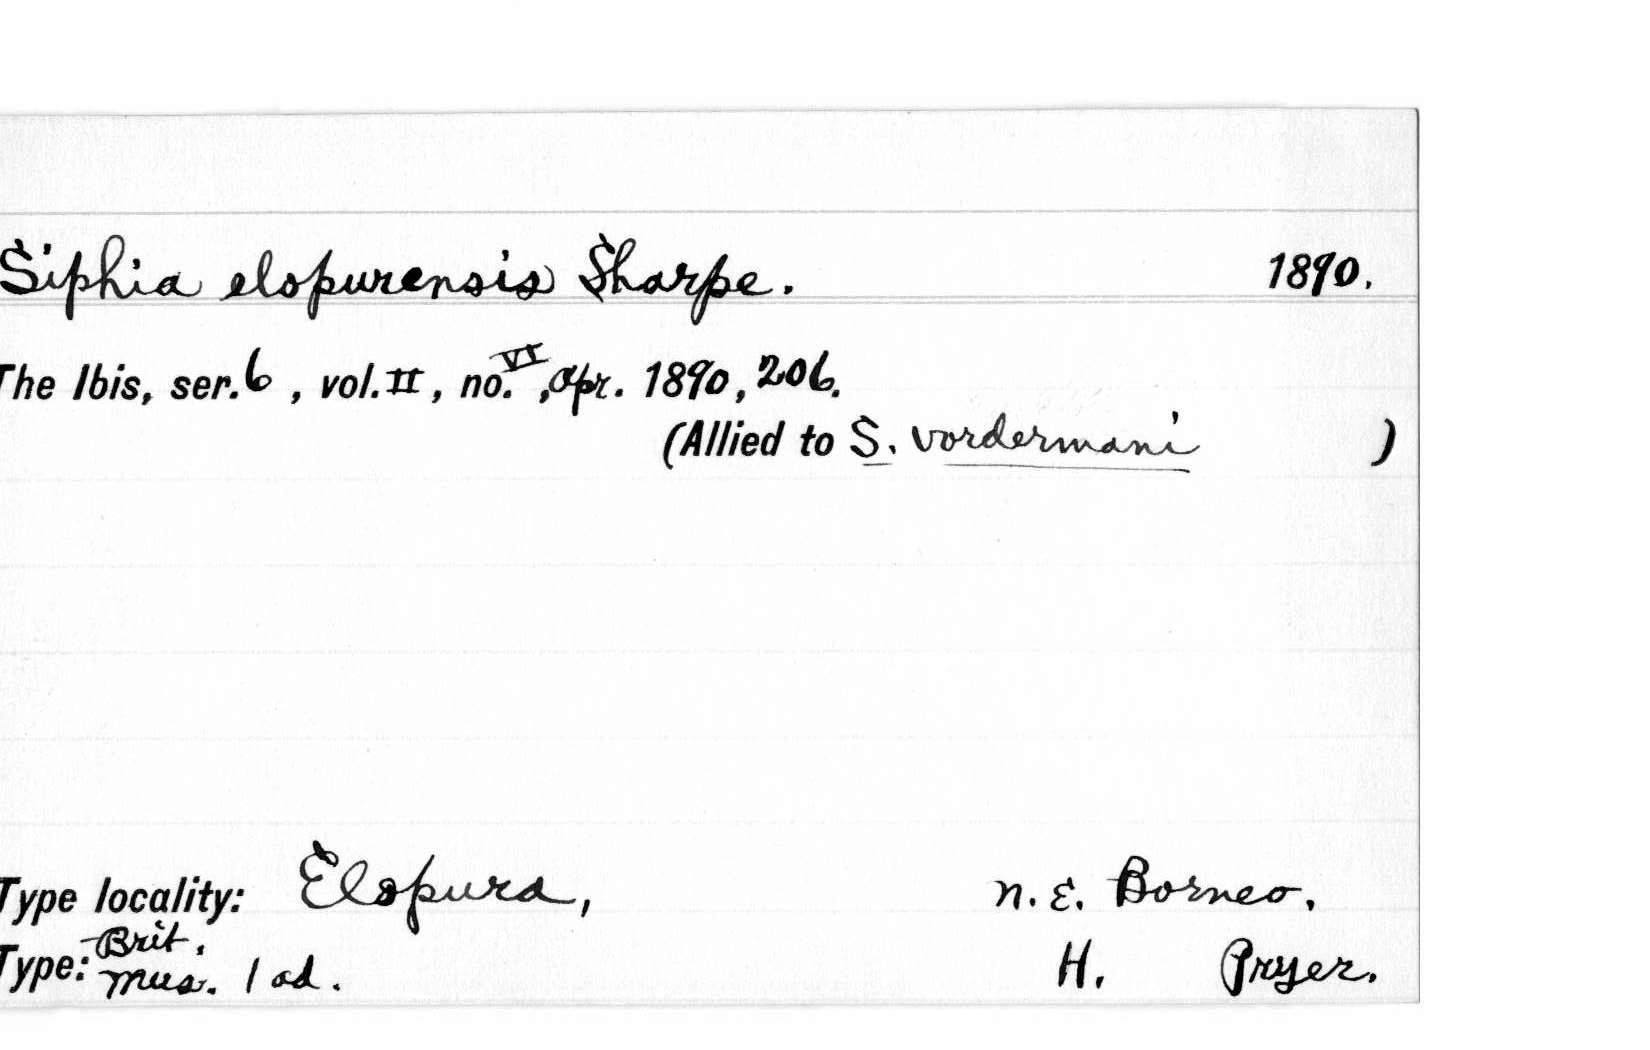 Siphia elopurensis Sharpe. 1890.
The Ibis, ser. 6, vol. II, no. VI, Apr. 1890, 206.
(Allied to S. vordermani )
Type locality: Elopura, N. E. Borneo.
Type: Brit. Mus. 1 ad. H. Pryer.